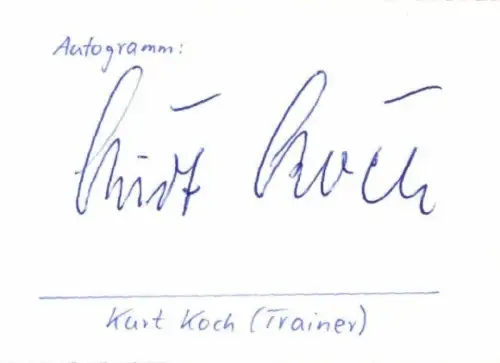 Autogramm:
Kurt Koch
Kurt Koch (Trainer)